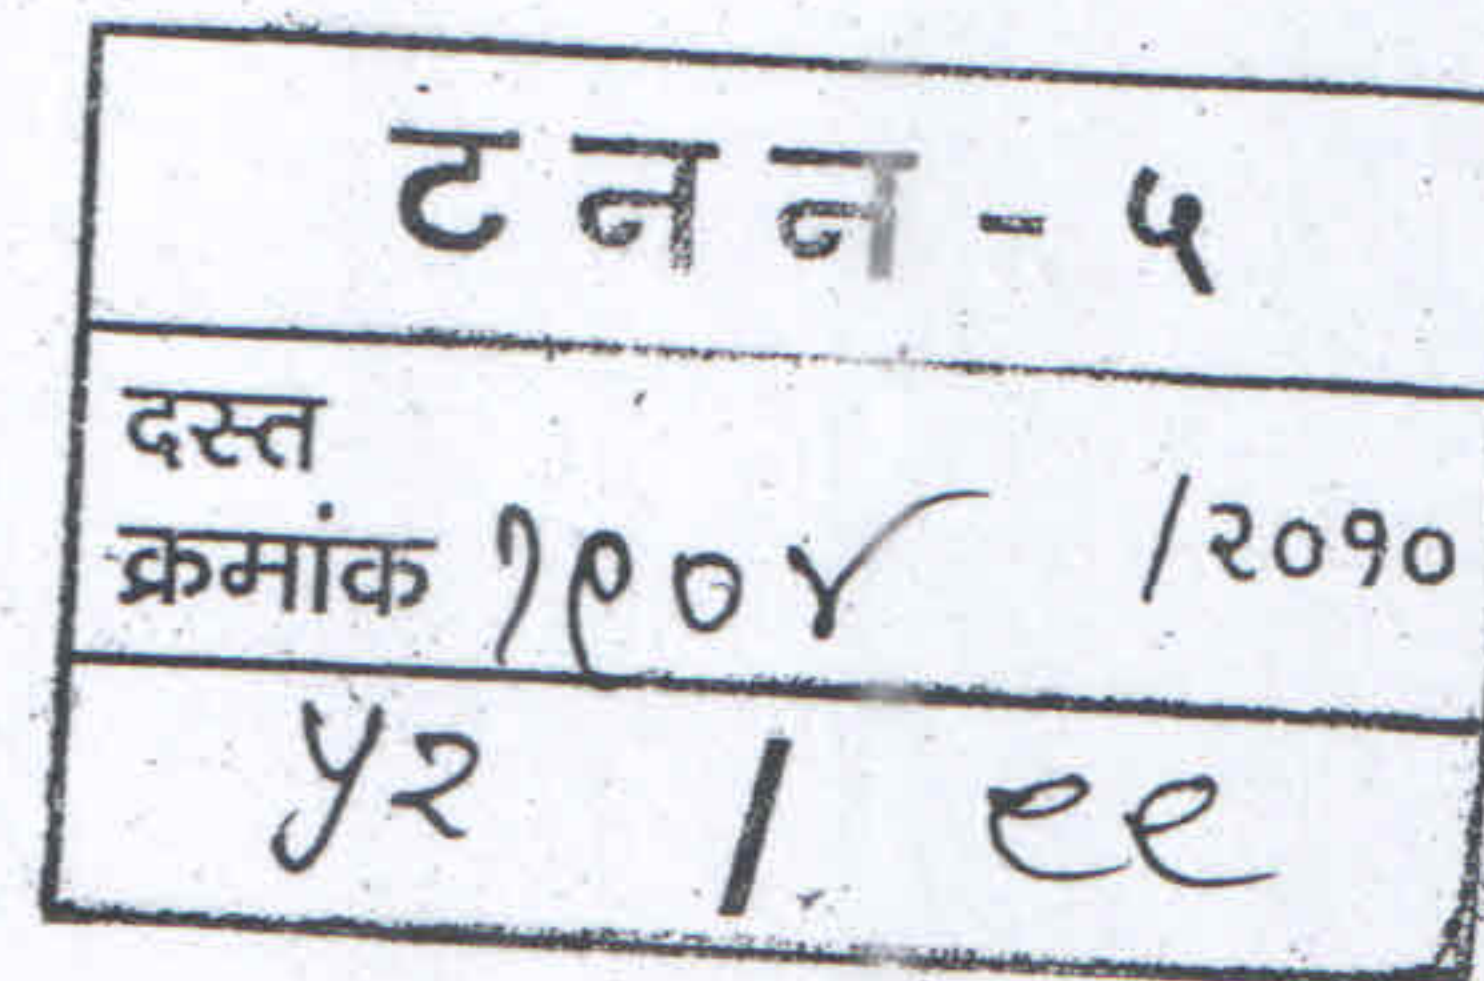 ट न न - ५
दस्त
क्रमांक १९०४ /२०१०
५२ / ९९